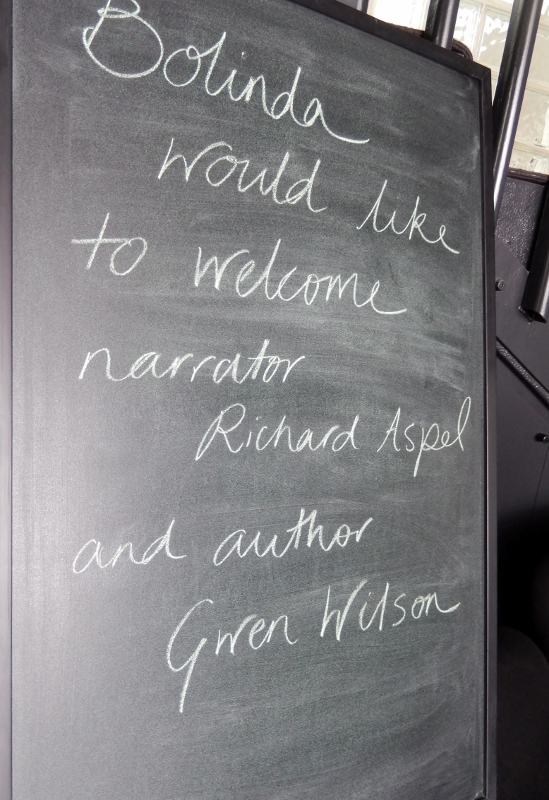 Bolinda
would like
to welcome
narrator
Richard Aspel
and author
Gwen Wilson